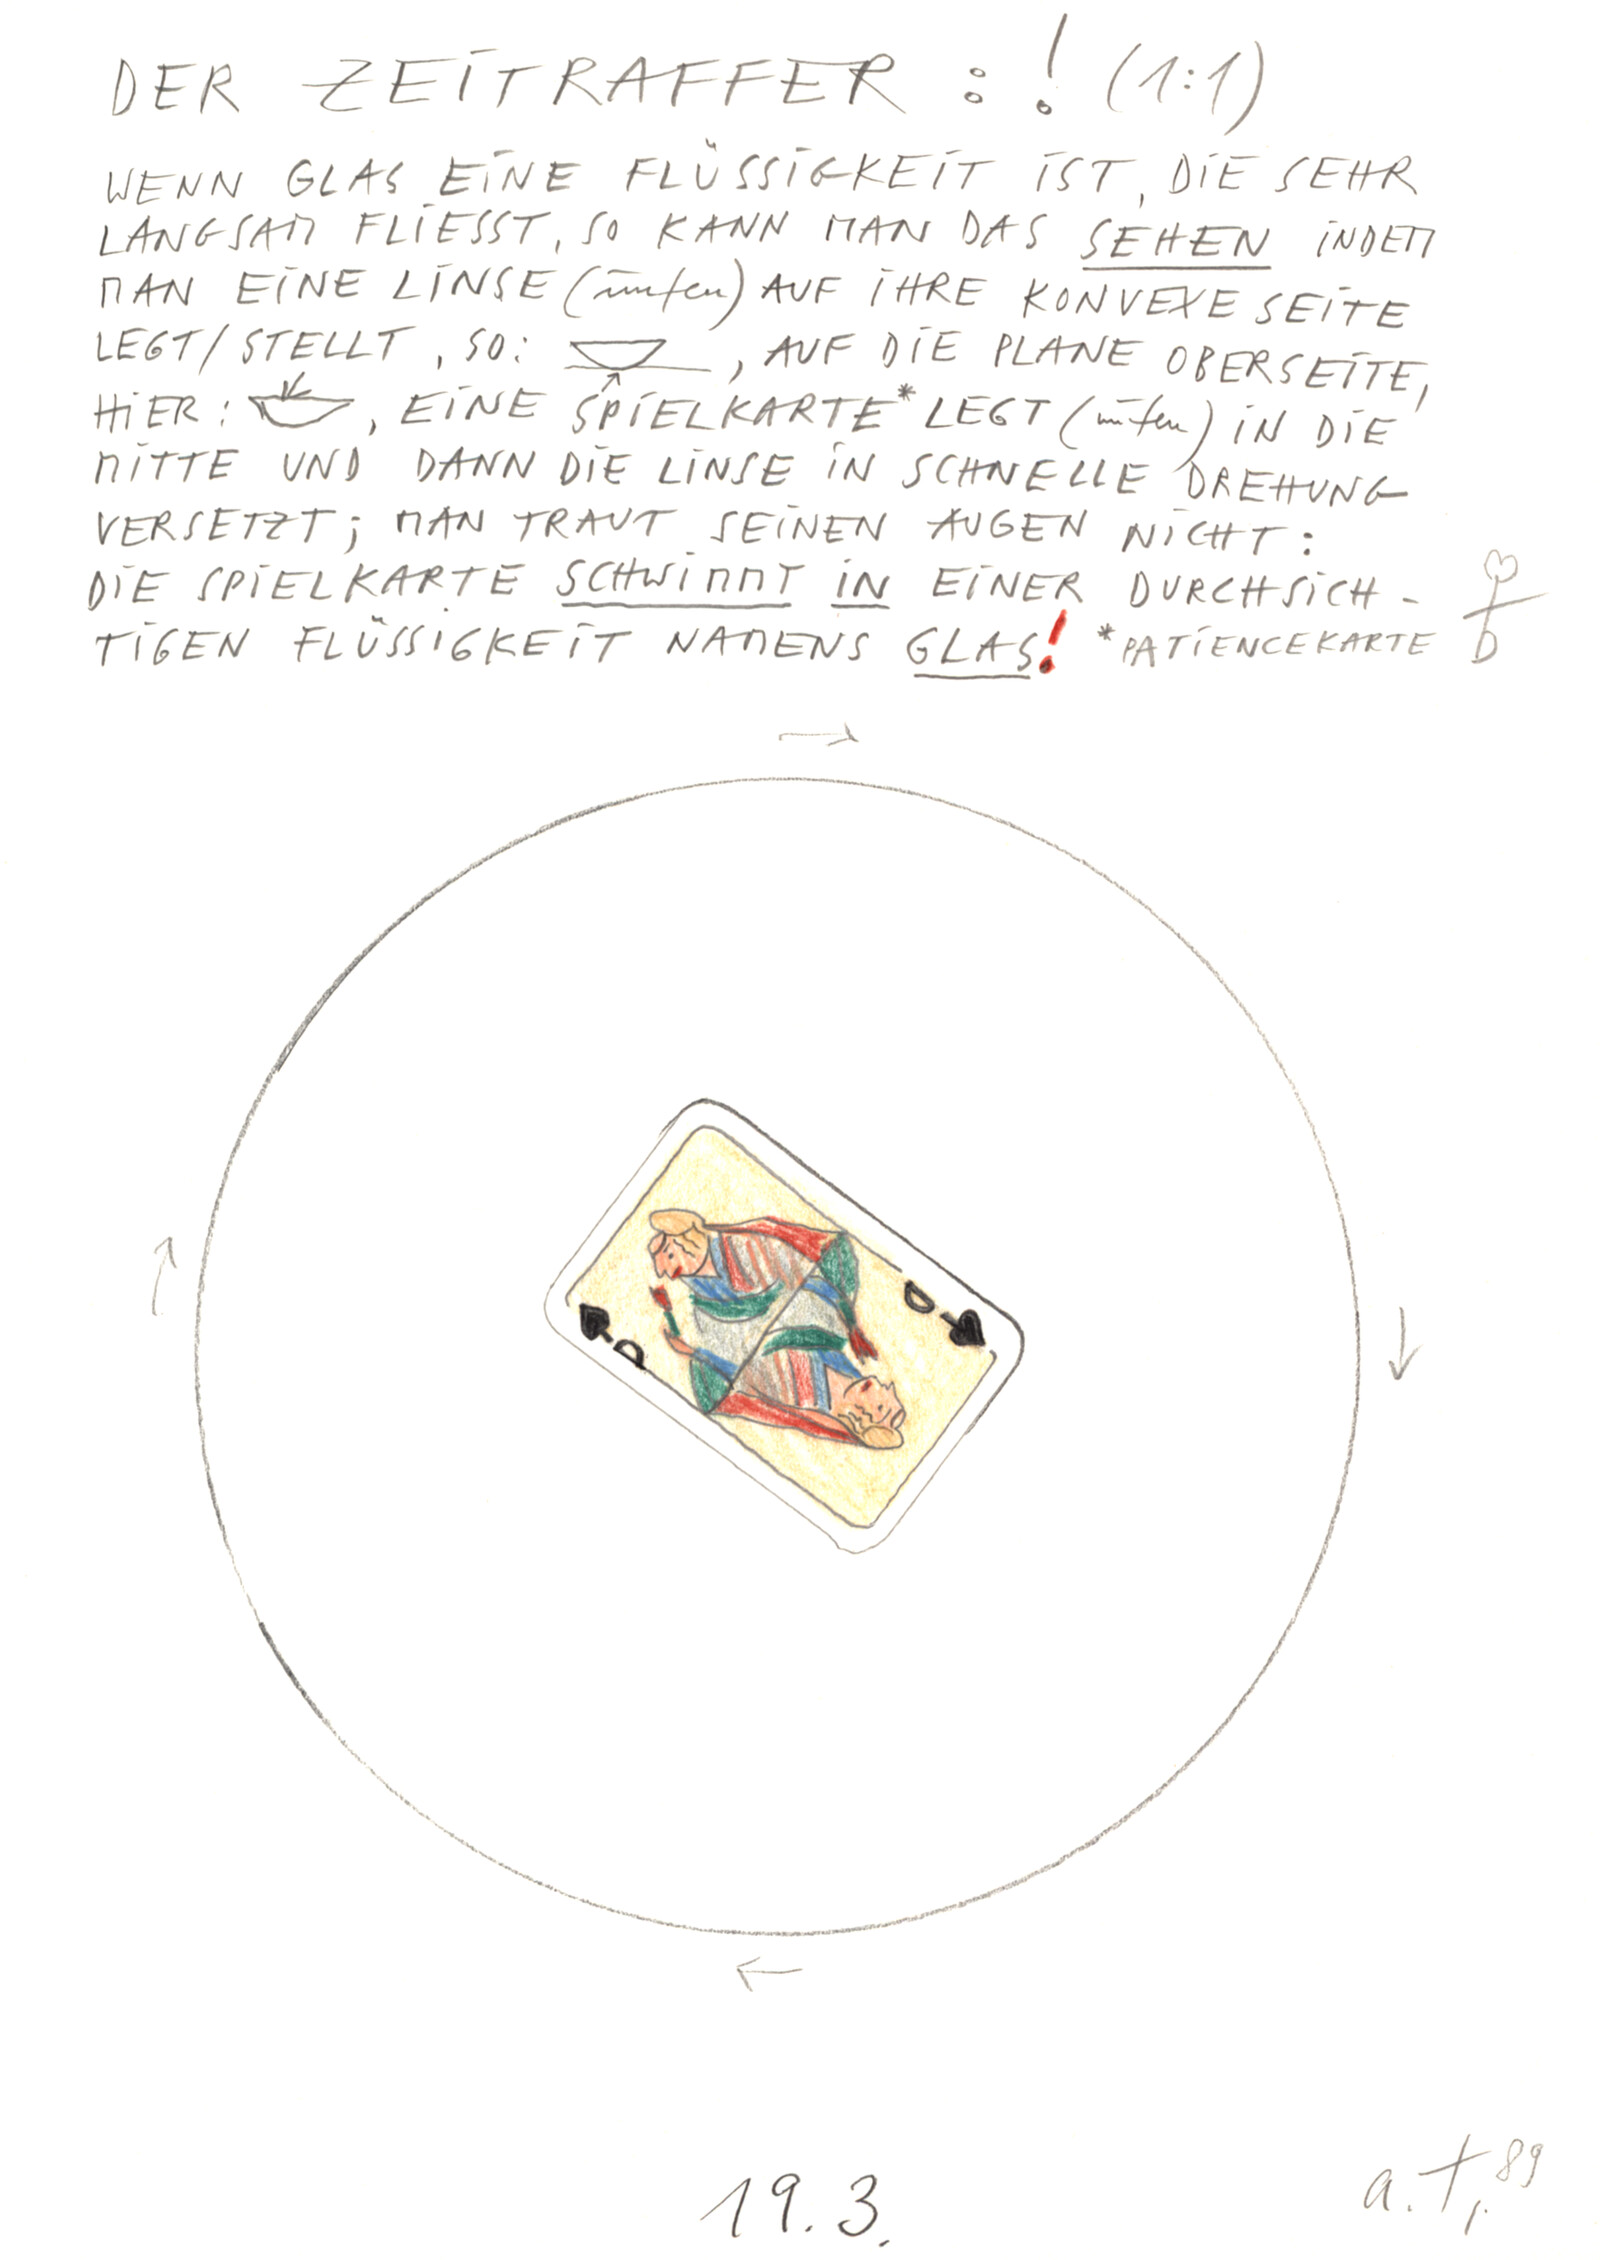 DER ZEITRAFFER :! (1:1)
WENN GLAS EINE FLÜSSIGKEIT IST, DIE SEHR
LANGSAM FLIESST, SO KANN MAN DAS SEHEN INDEM
MAN EINE LINSE ( ) AUF IHRE KONVEXE SEITE
LEGT/STELLT, SO: , AUF DIE PLANE OBERSEITE,
HIER: , EINE SPIELKARTE* LEGT ( ) IN DIE
MITTE UND DANN DIE LINSE IN SCHNELLE DREHUNG
VERSETZT; MAN TRAUT SEINEN AUGEN NICHT:
DIE SPIELKARTE SCHWIMMT IN EINER DURCHSICH-
TIGEN FLÜSSIGKEIT NAMENS GLAS! *PATIENCEKARTE
D
D
19.3.
a.t. 89